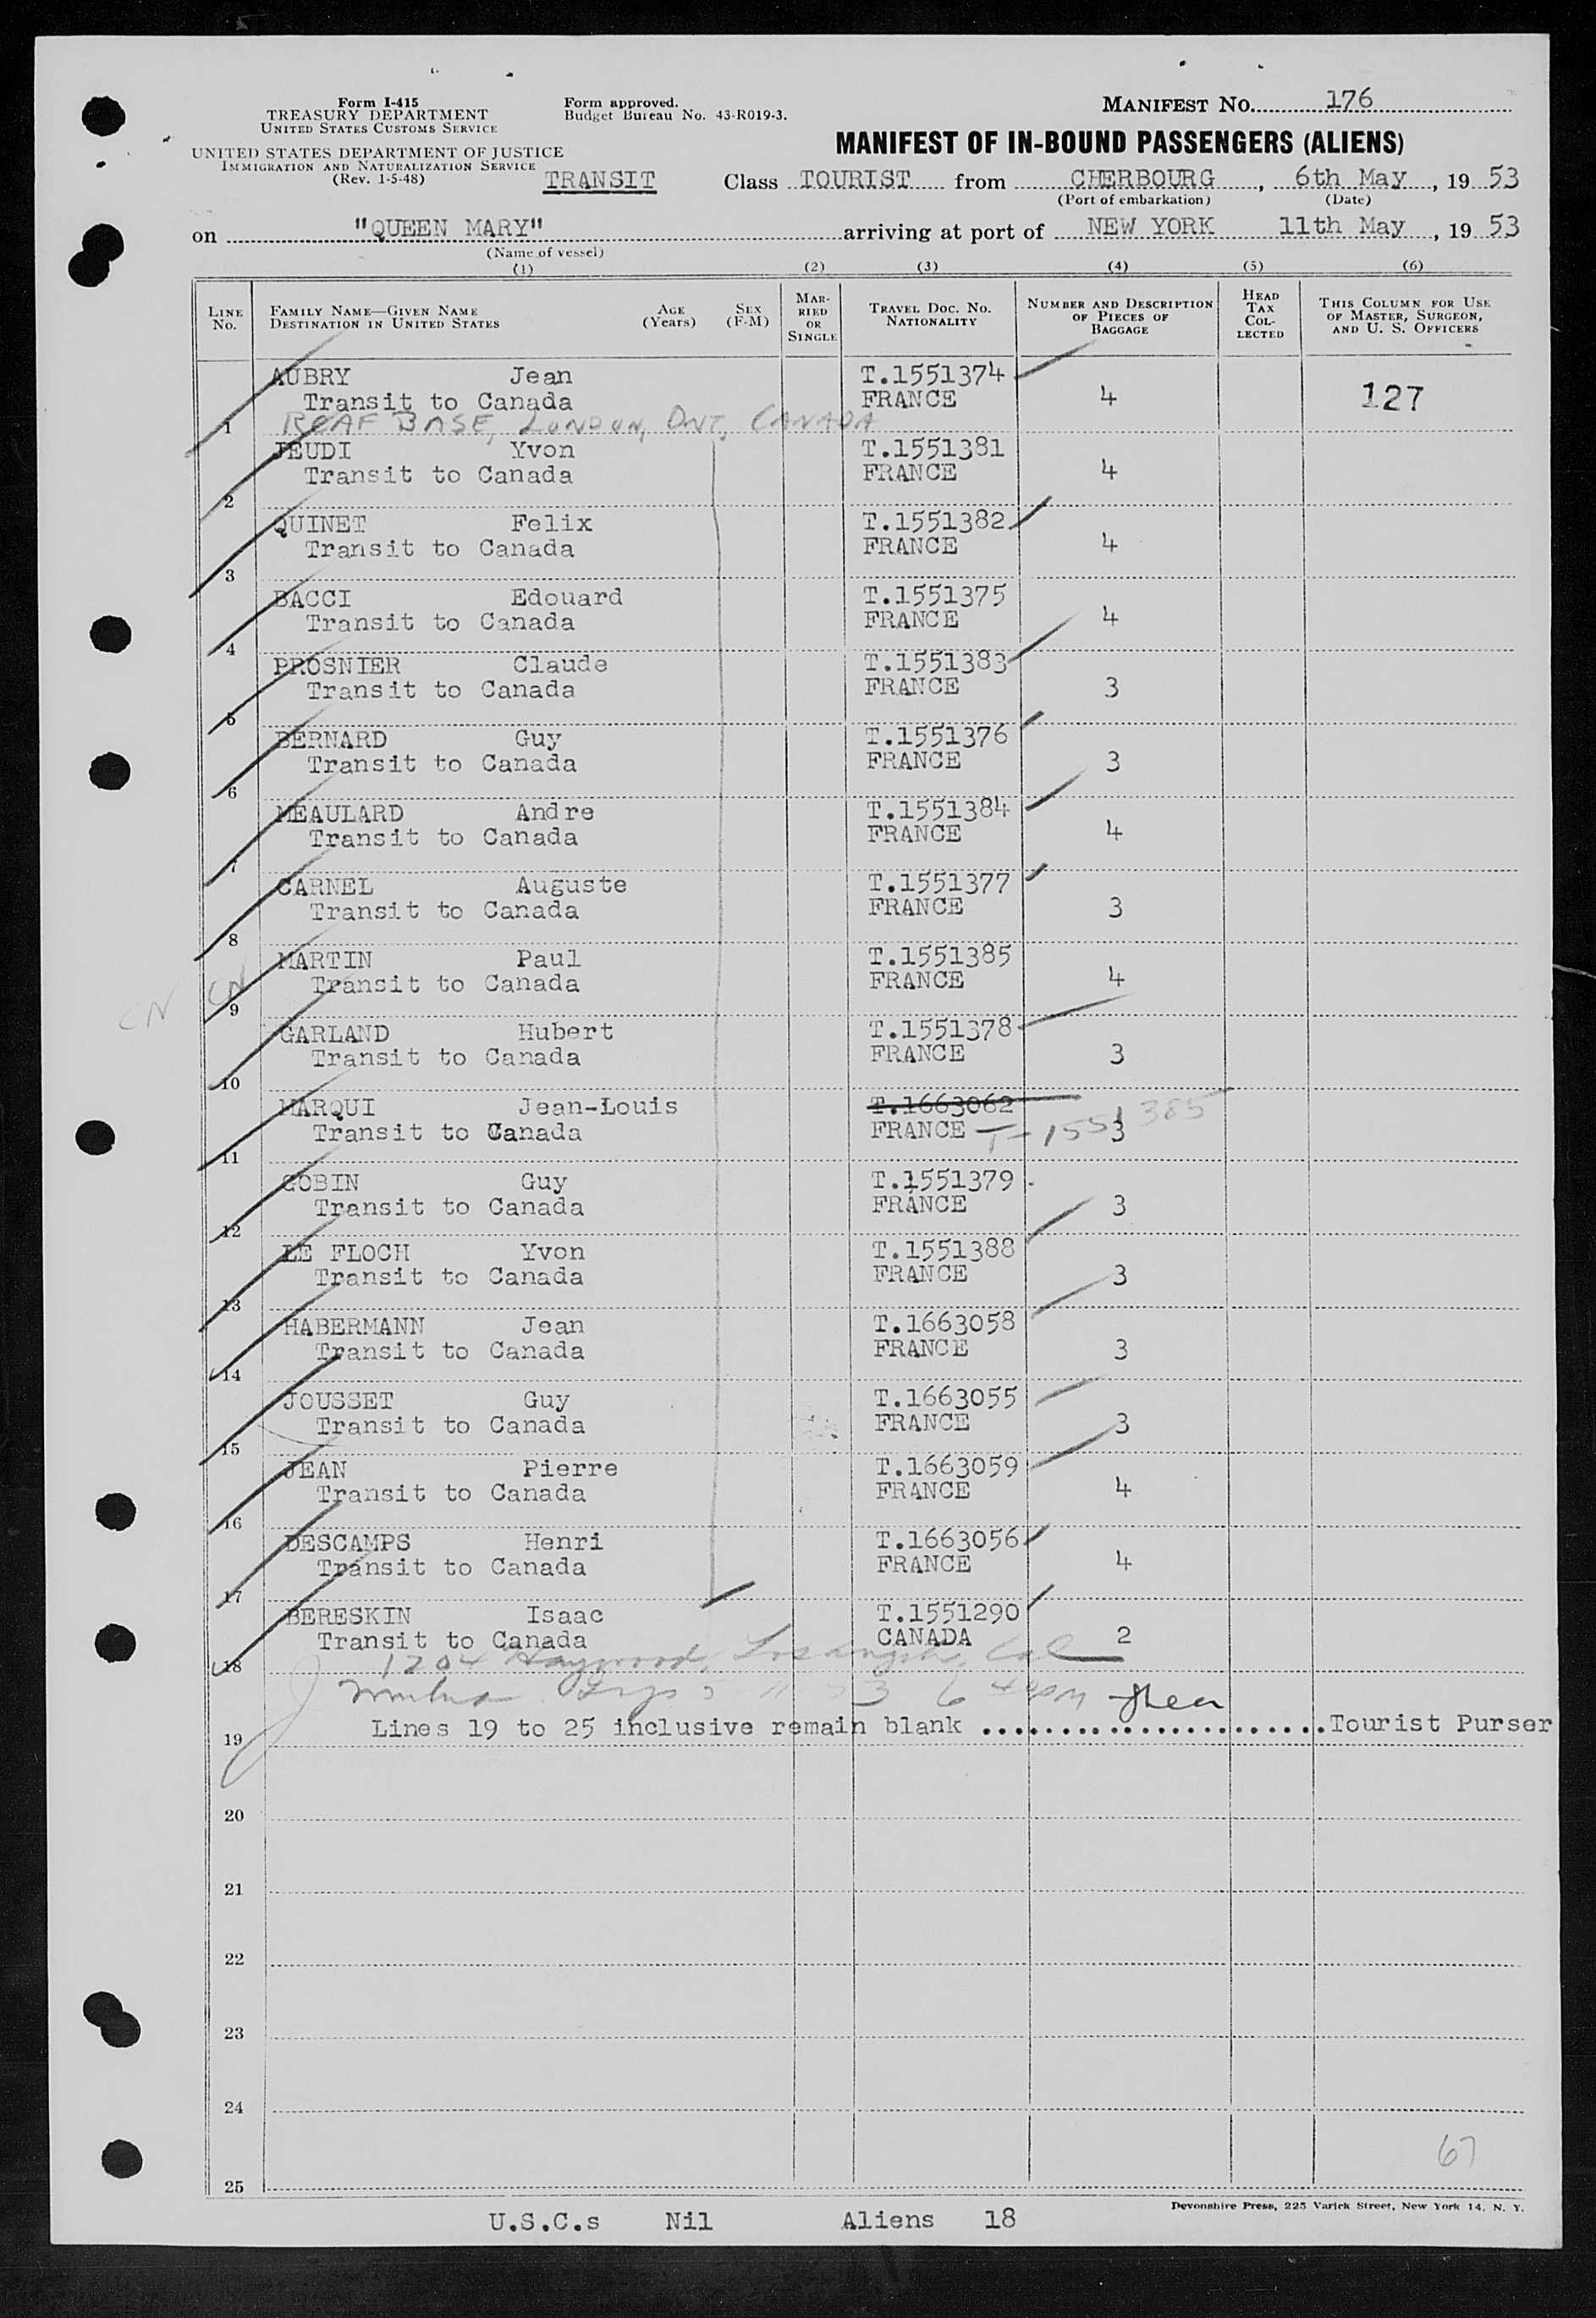 Form I-415
TREASURY DEPARTMENT
UNITED STATES CUSTOMS SERVICE
UNITED STATES DEPARTMENT OF JUSTICE
IMMIGRATION AND NATURALIZATION SERVICE
(Rev. 1-5-48)
Form approved.
Budget Bureau No. 43-R019-3.
MANIFEST No. 176
MANIFEST OF IN-BOUND PASSENGERS (ALIENS)
TRANSIT Class TOURIST from CHERBOURG, 6th May, 19 53
(Port of embarkation) (Date)
on "QUEEN MARY" arriving at port of NEW YORK 11th May, 19 53
(Name of vessel)
(1) (2) (3) (4) (5) (6)
LINE No. FAMILY NAME—GIVEN NAME DESTINATION IN UNITED STATES AGE (Years) SEX (F-M) MARRIED OR SINGLE TRAVEL DOC. NO. NATIONALITY NUMBER AND DESCRIPTION OF PIECES OF BAGGAGE HEAD TAX COLLECTED THIS COLUMN FOR USE OF MASTER, SURGEON, AND U. S. OFFICERS
AUBRY Jean T.1551374
Transit to Canada FRANCE 4 127
1 RCAF BASE, LONDON, ONT, CANADA
JEUDI Yvon T.1551381
Transit to Canada FRANCE 4
2
QUINET Felix T.1551382
Transit to Canada FRANCE 4
3
BACCI Edouard T.1551375
Transit to Canada FRANCE 4
4
PROSNIER Claude T.1551383
Transit to Canada FRANCE 3
5
BERNARD Guy T.1551376
Transit to Canada FRANCE 3
6
MEAULARD Andre T.1551384
Transit to Canada FRANCE 4
7
CARNEL Auguste T.1551377
Transit to Canada FRANCE 3
8
MARTIN Paul T.1551385
Transit to Canada FRANCE 4
CN CN 9
GARLAND Hubert T.1551378
Transit to Canada FRANCE 3
10
MARQUI Jean-Louis T.1663062
Transit to Canada FRANCE T-1551385 3
11
GOBIN Guy T.1551379
Transit to Canada FRANCE 3
12
LE FLOCH Yvon T.1551388
Transit to Canada FRANCE 3
13
HABERMANN Jean T.1663058
Transit to Canada FRANCE 3
14
JOUSSET Guy T.1663055
Transit to Canada FRANCE 3
15
JEAN Pierre T.1663059
Transit to Canada FRANCE 4
16
DESCAMPS Henri T.1663056
Transit to Canada FRANCE 4
17
BERESKIN Isaac T.1551290
Transit to Canada CANADA 2
18 1204 Haywood, Los Angeles, Cal
Lines 19 to 25 inclusive remain blank ........................Tourist Purser
19
20
21
22
23
24
67
25
Devonshire Press, 225 Varick Street, New York 14, N. Y.
U.S.C.s Nil Aliens 18